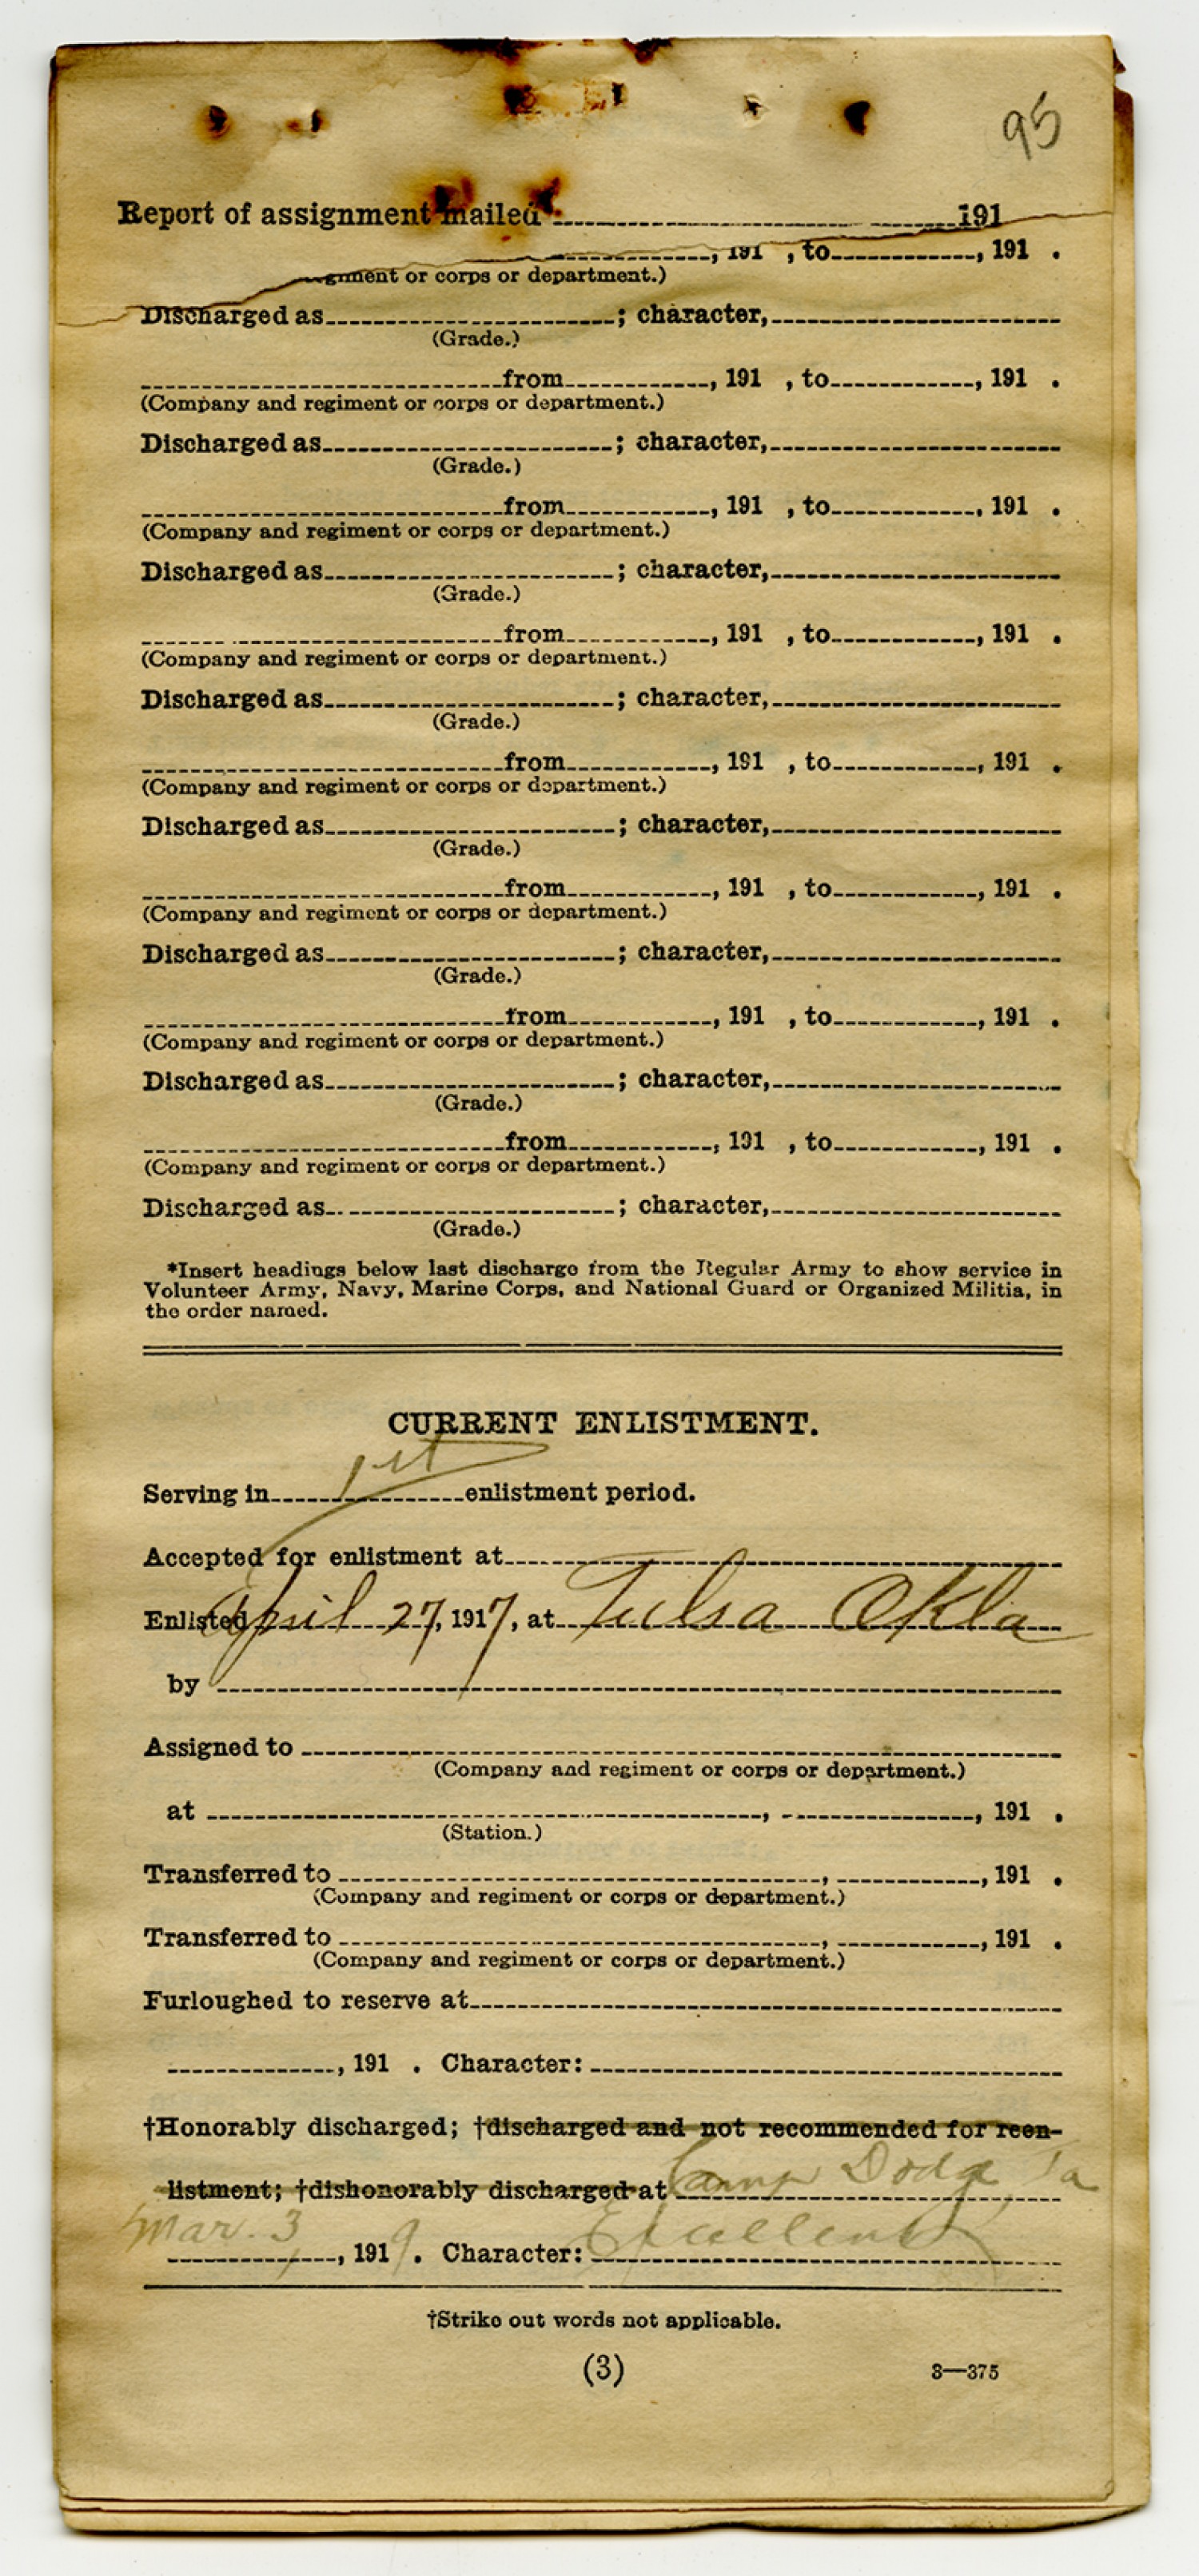 95
Report of assignment mailed 191
, 191 , to , 191 .
giment or corps or department.)
Discharged as ; character,
(Grade.)
from , 191 , to , 191 .
(Company and regiment or corps or department.)
Discharged as ; character,
(Grade.)
from , 191 , to , 191 .
(Company and regiment or corps or department.)
Discharged as ; character,
(Grade.)
from , 191 , to , 191 .
(Company and regiment or corps or department.)
Discharged as ; character,
(Grade.)
from , 191 , to , 191 .
(Company and regiment or corps or department.)
Discharged as ; character,
(Grade.)
from , 191 , to , 191 .
(Company and regiment or corps or department.)
Discharged as ; character,
(Grade.)
from , 191 , to , 191 .
(Company and regiment or corps or department.)
Discharged as ; character,
(Grade.)
from , 191 , to , 191 .
(Company and regiment or corps or department.)
Discharged as ; character,
(Grade.)
*Insert headings below last discharge from the Regular Army to show service in
Volunteer Army, Navy, Marine Corps, and National Guard or Organized Militia, in
the order named.
CURRENT ENLISTMENT.
Serving in 1st enlistment period.
Accepted for enlistment at
Enlisted April 27, 1917, at Tulsa Okla
by
Assigned to
(Company and regiment or corps or department.)
at , , 191 .
(Station.)
Transferred to , , 191 .
(Company and regiment or corps or department.)
Transferred to , , 191 .
(Company and regiment or corps or department.)
Furloughed to reserve at
, 191 . Character:
†Honorably discharged; †discharged and not recommended for reen-
listment; †dishonorably discharged at Camp Dodge Ia
Mar. 3, 1919. Character: Excellent
†Strike out words not applicable.
(3) 3—375